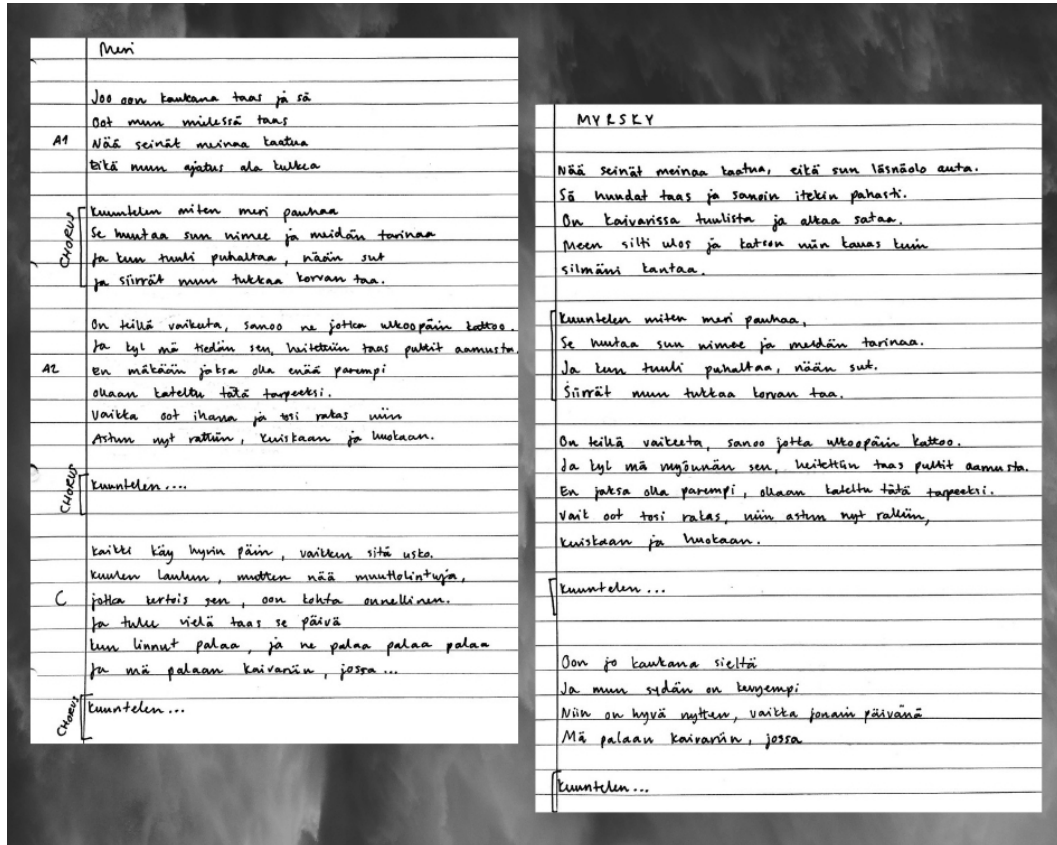 Meri
Joo oon kaukana taas ja sä
Oot mun mielessä taas
A1 Nää seinät meinaa kaatua
Eikä mun ajatus ala kulkea
CHORUS
Kuuntelen miten meri pauhaa
Se huutaa sun nimee ja meidän tarinaa
Ja kun tuuli puhaltaa, nään sut
Ja siirrät mun tukkaa korvan taa.
On teillä vaikeeta, sanoo ne jotka ulkoopäin kattoo.
Ja kyl mä tiedän sen, heitettiin taas pultit aamusta.
A2 En mäkään jaksa olla enää parempi
ollaan kateltu tätä tarpeeksi.
Vaikka oot ihana ja tosi rakas niin
Astun nyt rattiin, kuiskaan ja huokaan.
CHORUS
Kuuntelen....
Kaikki käy hyvin päin, vaikken sitä usko.
Kuulen laulun, mutten nää muuttolintuja,
C jotka kertois sen, oon kohta onnellinen.
Ja tulee vielä taas se päivä
kun linnut palaa, ja ne palaa palaa palaa
Ja mä palaan kaivariin, jossa...
CHORUS
Kuuntelen...
MYRSKY
Nää seinät meinaa kaatua, eikä sun läsnäolo auta.
Sä huudat taas ja sanoin itekin pahasti.
On kaivarissa tuulista ja alkaa sataa.
Meen silti ulos ja katson niin kauas kuin
silmäni kantaa.
Kuuntelen miten meri pauhaa,
Se huutaa sun nimee ja meidän tarinaa.
Ja kun tuuli puhaltaa, nään sut.
Siirrät mun tukkaa korvan taa.
On teillä vaikeeta, sanoo jotka ulkoopäin kattoo.
Ja kyl mä myönnän sen, heitettiin taas pultit aamusta.
En jaksa olla parempi, ollaan kateltu tätä tarpeeksi.
Vaik oot tosi rakas, niin astun nyt rattiin,
kuiskaan ja huokaan.
Kuuntelen...
Oon jo kaukana sieltä
Ja mun sydän on kevyempi
Niin on hyvä nytten, vaikka jonain päivänä
Mä palaan kaivariin, jossa
Kuuntelen...